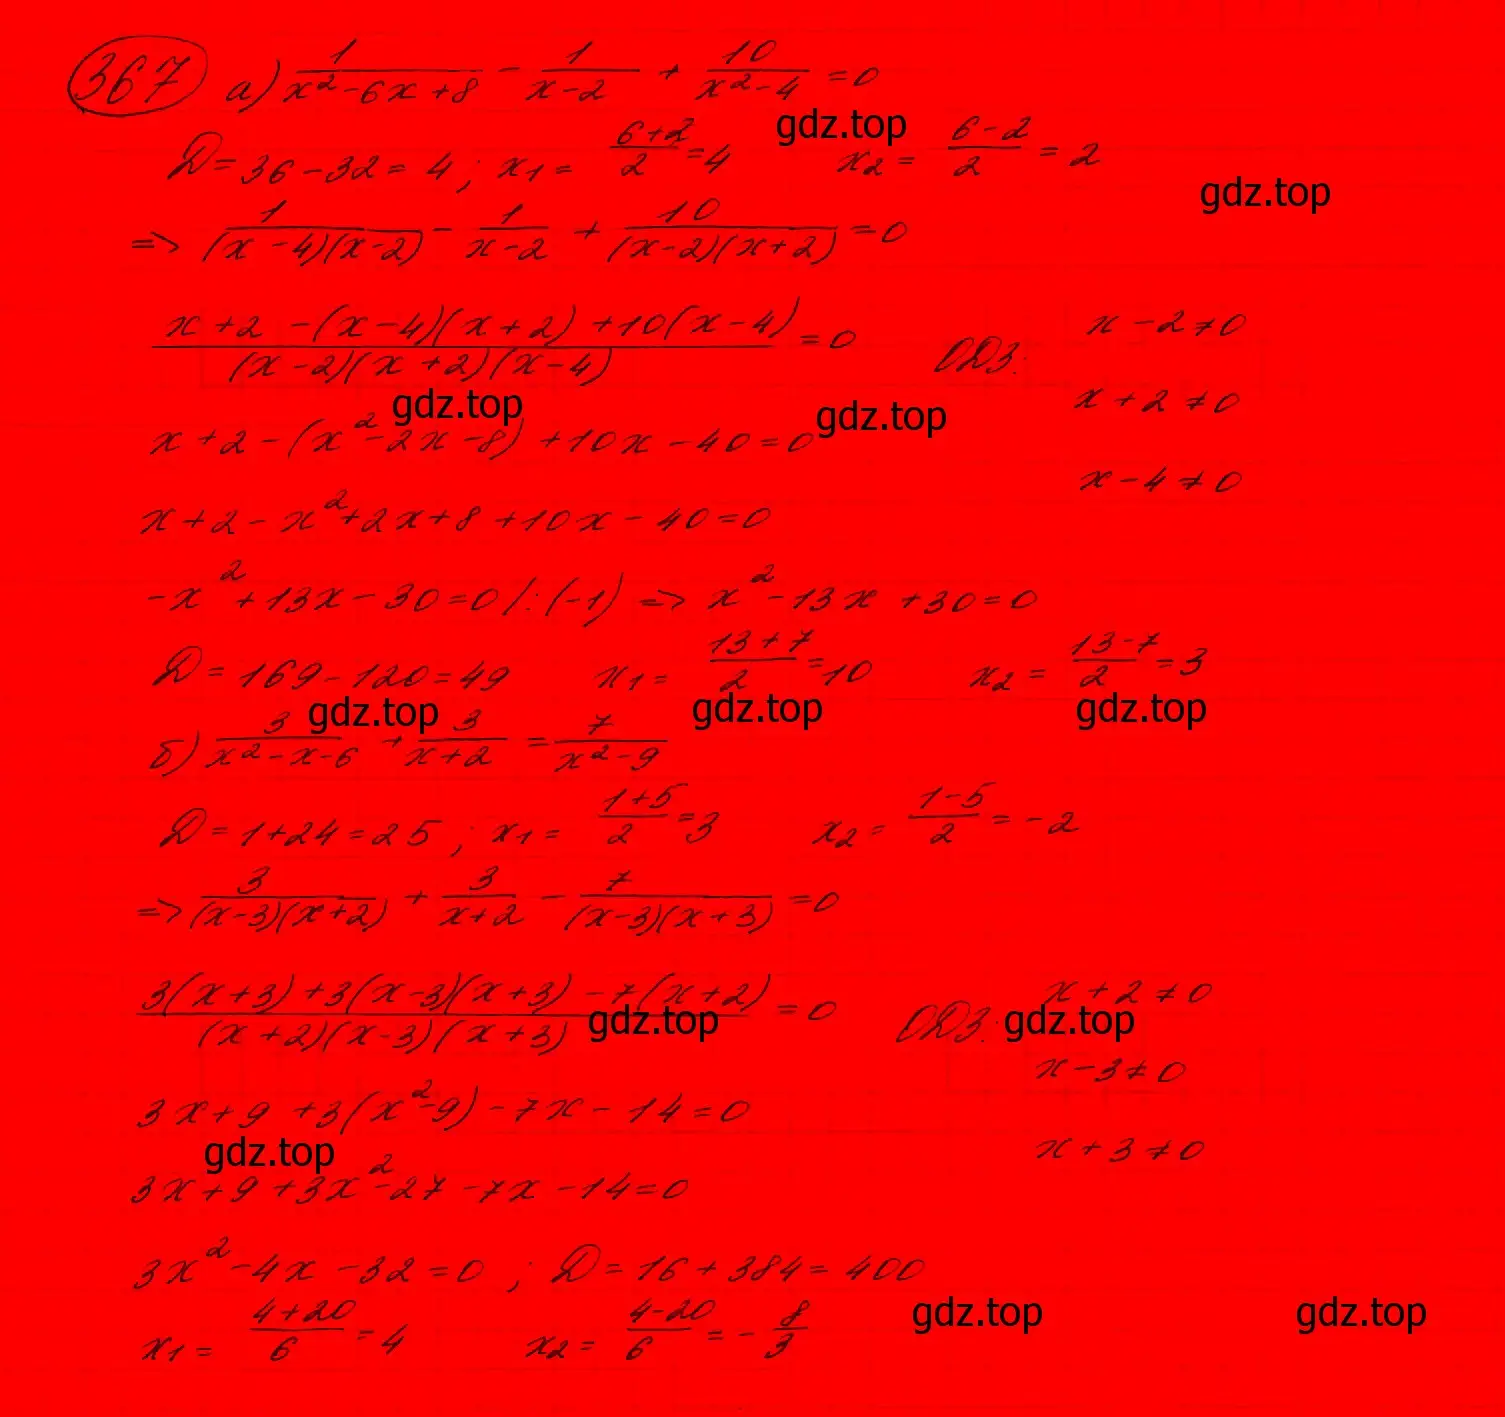 367 а) 1/(x²-6x+8) - 1/(x-2) + 10/(x²-4) = 0
gdz.top
D = 36-32 = 4; x1 = (6+2)/2 = 4 x2 = (6-2)/2 = 2
gdz.top
=> 1/((x-4)(x-2)) - 1/(x-2) + 10/((x-2)(x+2)) = 0
(x+2 -(x-4)(x+2) +10(x-4))/((x-2)(x+2)(x-4)) = 0 ОДЗ: x-2≠0
x+2≠0
gdz.top gdz.top
x+2-(x²-2x-8)+10x-40=0
x-4≠0
x+2-x²+2x+8+10x-40=0
-x²+13x-30=0 /:(-1) => x²-13x+30=0
D = 169-120=49 x1 = (13+7)/2 = 10 x2 = (13-7)/2 = 3
gdz.top gdz.top gdz.top
б) 3/(x²-x-6) + 3/(x+2) = 7/(x²-9)
D = 1+24=25; x1 = (1+5)/2 = 3 x2 = (1-5)/2 = -2
=> 3/((x-3)(x+2)) + 3/(x+2) - 7/((x-3)(x+3)) = 0
(3(x+3)+3(x-3)(x+3)-7(x+2))/((x+2)(x-3)(x+3)) = 0 ОДЗ: x+2≠0
gdz.top gdz.top
x-3≠0
3x+9+3(x²-9)-7x-14=0
x+3≠0
gdz.top
3x+9+3x²-27-7x-14=0
3x²-4x-32=0; D=16+384=400
x1 = (4+20)/6 = 4 x2 = (4-20)/6 = -8/3
gdz.top gdz.top